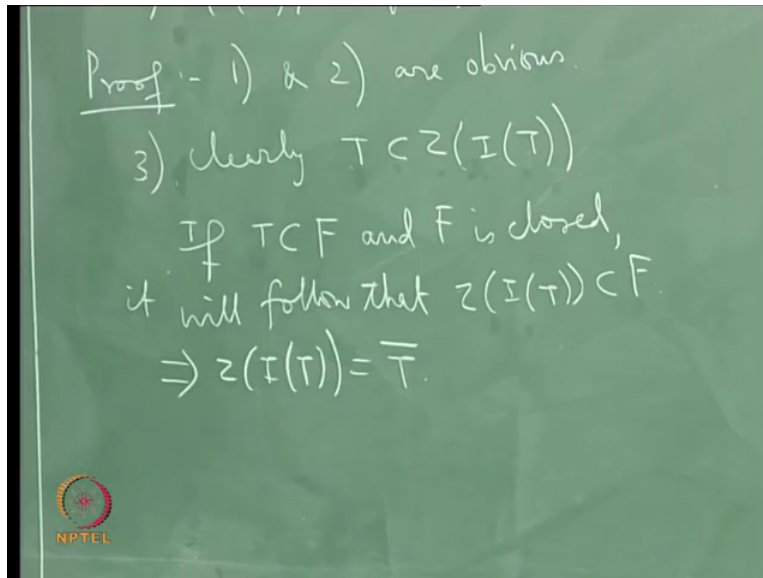 Proof :- 1) & 2) are obvious.
3) clearly T ⊂ Z(I(T))
If T ⊂ F and F is closed,
it will follow that Z(I(T)) ⊂ F.
⇒ Z(I(T)) = T̅.
NPTEL